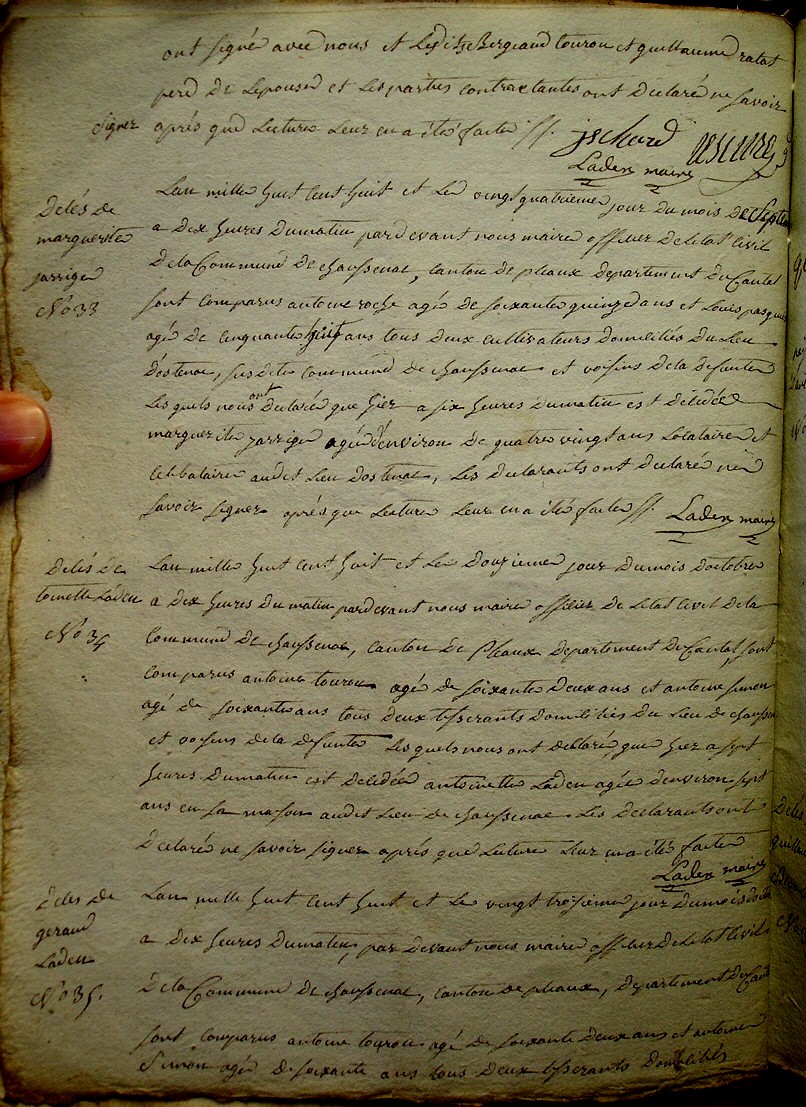 ont signé avec nous et lesdits Bergeaud tourou et guillaume ratat
pere de lepouse et les parties contractantes ont declaré ne savoir
signer après que lecture leur en a été faite //.
Laden maire
Delés de
marguerite
jarrige
No 33
Lan mille huit cent huit et le vingt quatrieme jour du mois de Septem
a dix heures du matin pardevant nous maire officier de letat civil
de la Commune de chaussenac, canton de pleaux departement du Cantal
sont comparus antoine roche agé de soixante quinze ans et Louis pasquier
agé de cinquante huit ans tous deux cultivateurs domiciliés du lieu
dostenac, susdite commune de chaussenac et voisins de la defunte
les quels nous ont declaré que hier a six heures du matin est décédée
marguerite jarrige agée denviron de quatre vingt ans locataire et
celibataire audit lieu dostenac, les declarants ont declaré ne
savoir signer après que lecture leur en a été faite //. Laden maire
Delés de
toinette Laden
No 34
Lan mille huit cent huit et le douzieme jour du mois doctobre
a dix heures du matin pardevant nous maire officier de letat civil de la
Commune de chaussenac, canton de Pleaux departement du Cantal, sont
comparus antoine tourou agé de soixante deux ans et antoine simon
agé de soixante ans tous deux tisserants domiciliés du lieu de chaussenac
et voisins de la defunte lesquels nous ont declaré que hier a sept
heures du matin est décédée antoinette Laden agée denviron sept
ans en sa maison audit lieu de chaussenac. les declarants ont
declaré ne savoir signer après que lecture leur en a été faite
Laden maire
Delés de
geraud
Laden
No 35.
Lan mille huit cent huit et le vingt troisieme jour du mois doctob
a dix heures du matin, par devant nous maire officier de letat civil
de la Commune de chaussenac, canton de pleaux, departement du Cant
sont comparus antoine tourou agé de soixante deux ans et antoine
Simon agé de soixante ans tous deux tisserants domiciliés